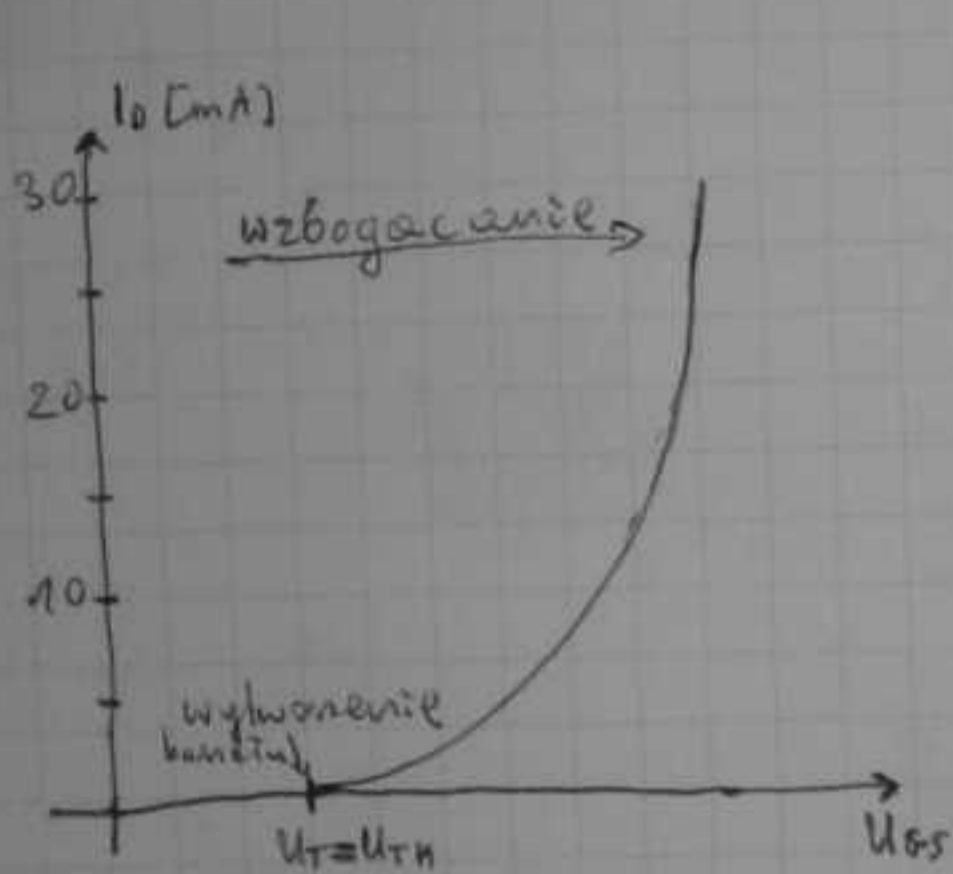 I_D [mA]
30
wzbogacanie
20
10
wytworzenie
kanału
U_T=U_TN
U_GS